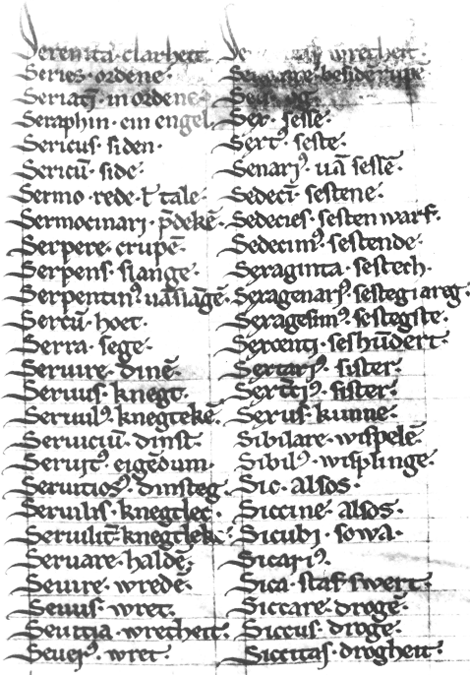 Serenitas clarheit
Series · ordene ·
Seriatī · in ordene
Seraphin · ein engel ·
Sericus · siden ·
Sericū · side ·
Sermo · rede · ł tale ·
Sermocinari · p̄dekē ·
Serpere · crupē ·
Serpens · slange ·
Serpentin⁹ · uā slāgē ·
Sertū · hoet ·
Serra · sege ·
Seruire · dinē ·
Seruus · knegt ·
Seruul⁹ · knegtekē ·
Seruiciū · dinst ·
Seruit⁹ · eigēdum ·
dinsteg ·
Seruilis · knegtlec ·
Seruilit · knegtlek ·
Seruare · haldē ·
Seuire · wredē ·
Seuus · wret ·
Seuitia · wretheit ·
Seuer⁹ · wret ·
wretheit ·
Sex · sesse ·
Sext⁹ · seste ·
Senari⁹ · uā sessē ·
Sedecī · sestene ·
Sedecies · sesten warf ·
Sedecim⁹ · sestende ·
Sexaginta · sestech ·
Sexagenari⁹ · sestegiareg ·
Sexagesim⁹ · sestegste ·
Sexcenti · seshūdert ·
Sextari⁹ · sister ·
sister ·
Sexus · kunne ·
Sibilare · wispelē ·
Sibil⁹ · wisplinge ·
Sic · alsos ·
Siccine · alsos ·
Sicubi · sowa ·
Sicari⁹ ·
Sica · staf swert ·
Siccare · drogē ·
Siccus · droge ·
Siccitas · drogheit ·